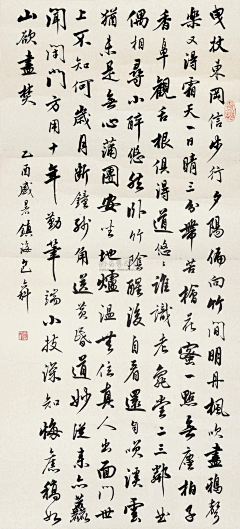 曳杖東岡信步行夕陽偏向竹間明丹楓吹盡鴉聲
樂又得霜天一日晴三分帶苦檜花蜜一點無塵柏子
香鼻觀舌根俱得道悠悠誰識老龜堂二三鄰並
偶相尋小醉悠然臥竹陰醒後自看還自笑溪雲
猶未是無心蒲團安坐地爐温無位真人出面門世
上不知何歲月斷鐘殘角送黄昏道妙從來亦
聞閉門方用十年勤筆端小技深知悔舊稿如
山欲盡焚
乙酉盛暑鎮海包